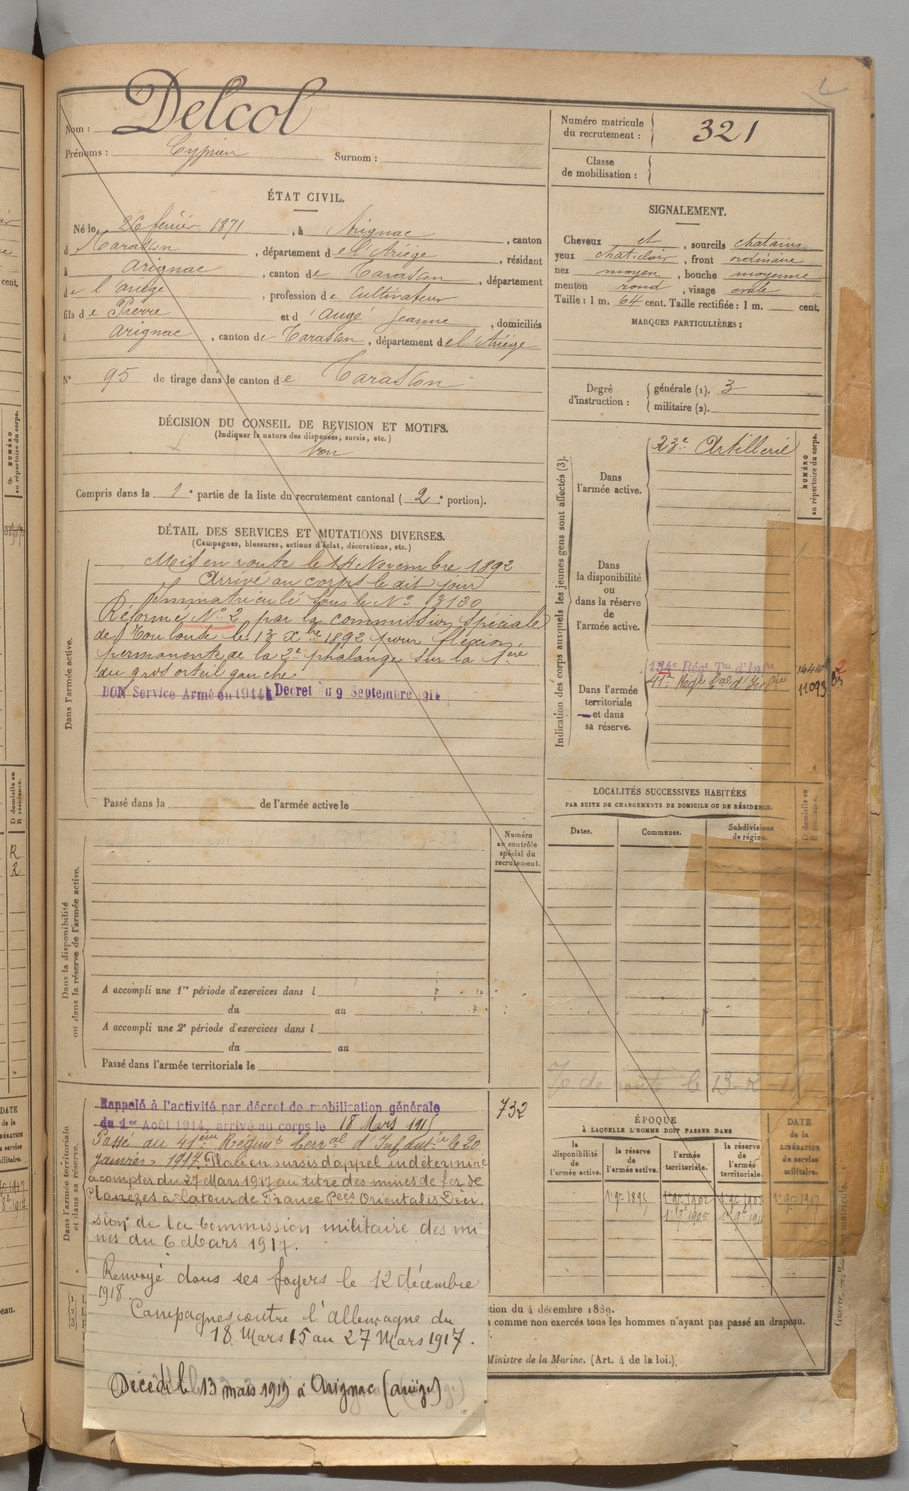 Nom : Delcol
Prénoms : Cyprien Surnom :
ÉTAT CIVIL.
Né le 26 février 1871, à Arignac, canton
d Tarascon, département de l'Ariège, résidant
à Arignac, canton de Tarascon, département
de l'Ariège, profession de Cultivateur
fils de Pierre et d'Augé Jeanne, domiciliés
à Arignac, canton de Tarascon, département de l'Ariège
N° 95 de tirage dans le canton de Tarascon
DÉCISION DU CONSEIL DE REVISION ET MOTIFS.
(Indiquer la nature des dispenses, sursis, etc.)
bon
Compris dans la 1e partie de la liste du recrutement cantonal (2e portion).
DÉTAIL DES SERVICES ET MUTATIONS DIVERSES.
(Campagnes, blessures, actions d'éclat, décorations, etc.)
Dans l'armée active.
Mis en route le 14 Novembre 1892
Arrivé au corps le dit jour
Immatriculé sous le N° 3130
Réformé N° 2 par la commission spéciale
de Toulouse le 13 Xbre 1892 pour flexion
permanente de la 2e phalange sur la 1ère
du gros orteil gauche
BON Service Armé en 1914 Décret du 9 Septembre 1914
Passé dans la de l'armée active le
Dans la disponibilité
ou dans la réserve de l'armée active.
Numéro
au contrôle
spécial du
recrutement.
A accompli une 1re période d'exercices dans l
du au
A accompli une 2e période d'exercices dans l
du au
Passé dans l'armée territoriale le
Dans l'armée territoriale
et dans sa réserve.
732
Rappelé à l'activité par décret de mobilisation générale
du 1er Août 1914, arrivé au corps le 18 Mars 1915
Passé au 41ème Régimt Terral d'Infantie le 20
janvier 1917. Placé en sursis d'appel indéterminé
à compter du 27 Mars 1917 au titre des mines de fer de
Planèzes à Latour de France Pées Orientales Déci
sion de la Commission militaire des mi
nes du 6 Mars 1917.
Renvoyé dans ses foyers le 12 décembre
1918.
Campagnes contre l'Allemagne du
18 Mars 15 au 27 Mars 1917.
Décédé le 13 mars 1919 à Arignac (ariège)
Numéro matricule
du recrutement : 321
Classe
de mobilisation :
SIGNALEMENT.
Cheveux et, sourcils chatains
yeux chat. clair, front ordinaire
nez moyen, bouche moyenne
menton rond, visage ovale
Taille : 1 m. 64 cent. Taille rectifiée : 1 m. cent.
MARQUES PARTICULIÈRES :
Degré
d'instruction :
générale (1). 3
militaire (2).
Indication des corps auxquels les jeunes gens sont affectés (3).
NUMÉRO
au répertoire du corps.
Dans
l'armée active.
23e Artillerie
Dans
la disponibilité
ou
dans la réserve
de
l'armée active.
Dans l'armée
territoriale
et dans
sa réserve.
134e Régt Tal d'Infie
41e Régt Tal d'Infie
11093
LOCALITÉS SUCCESSIVES HABITÉES
PAR SUITE DE CHANGEMENTS DE DOMICILE OU DE RÉSIDENCE.
Dates. Communes. Subdivisions
de région.
D domicile ou
R résidence.
ÉPOQUE
À LAQUELLE L'HOMME DOIT PASSER DANS
la
disponibilité
de l'armée
active.
la réserve
de
l'armée active.
l'armée
territoriale.
la réserve
de
l'armée
territoriale.
DATE
de la
LIBÉRATION
du service
militaire.
ction du 4 décembre 1889.
comme non exercés tous les hommes n'ayant pas passé au drapeau.
Ministre de la Marine. (Art. 4 de la loi.)